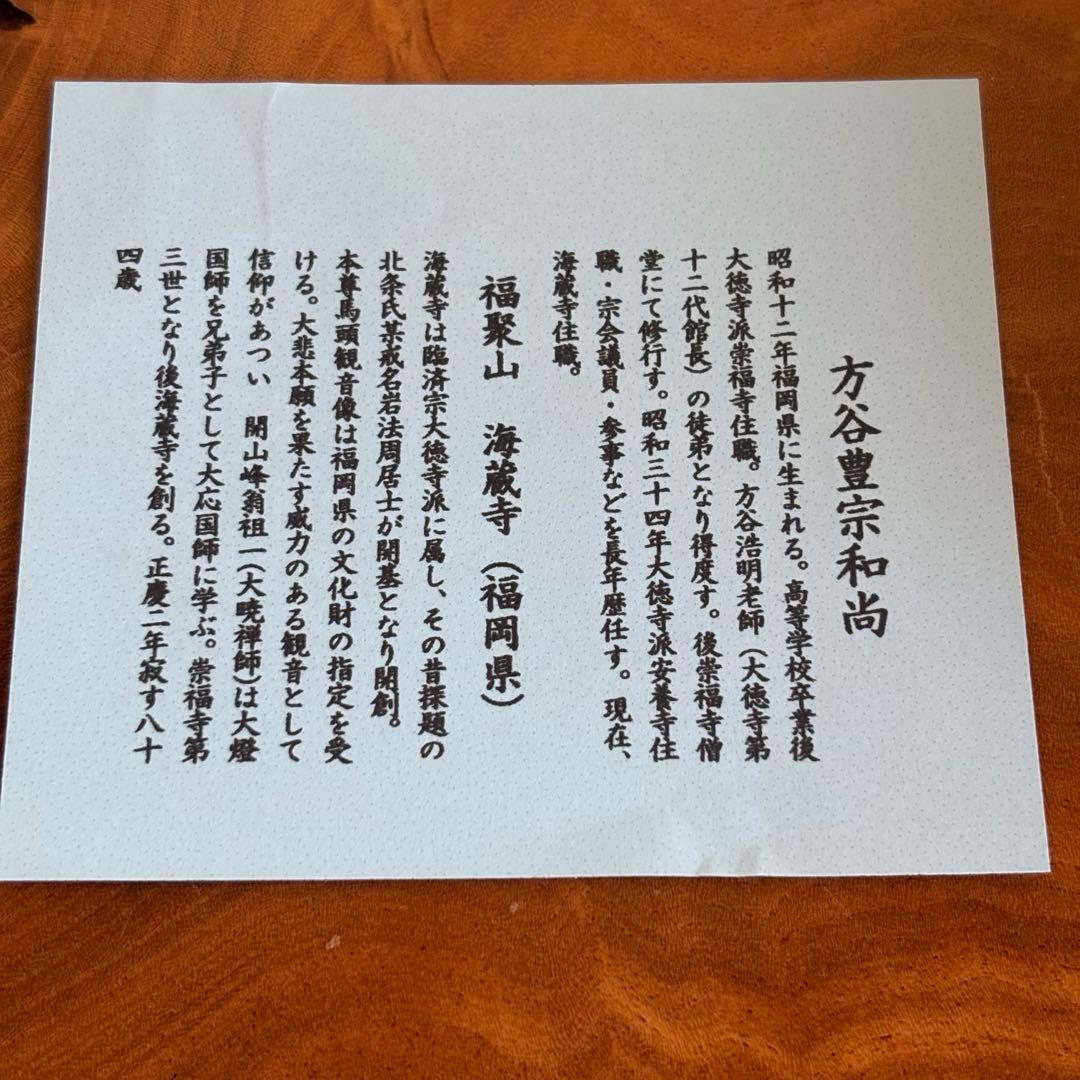 方谷豊宗和尚
昭和十二年福岡県に生まれる。高等学校卒業後
大徳寺派崇福寺住職。方谷浩明老師（大徳寺第
十二代館長）の徒弟となり得度す。後崇福寺僧
堂にて修行す。昭和三十四年大徳寺派安養寺住
職・宗会議員・参事などを長年歴任す。現在、
海蔵寺住職。
福聚山　海蔵寺（福岡県）
海蔵寺は臨済宗大徳寺派に属し、その昔探題の
北条氏某戒名岩法周居士が開基となり開創。
本尊馬頭観音像は福岡県の文化財の指定を受
ける。大悲本願を果たす威力のある観音として
信仰があつい　開山峰翁祖一（大暁禅師）は大燈
国師を兄弟子として大応国師に学ぶ。崇福寺第
三世となり後海蔵寺を創る。正慶二年寂す八十
四歳